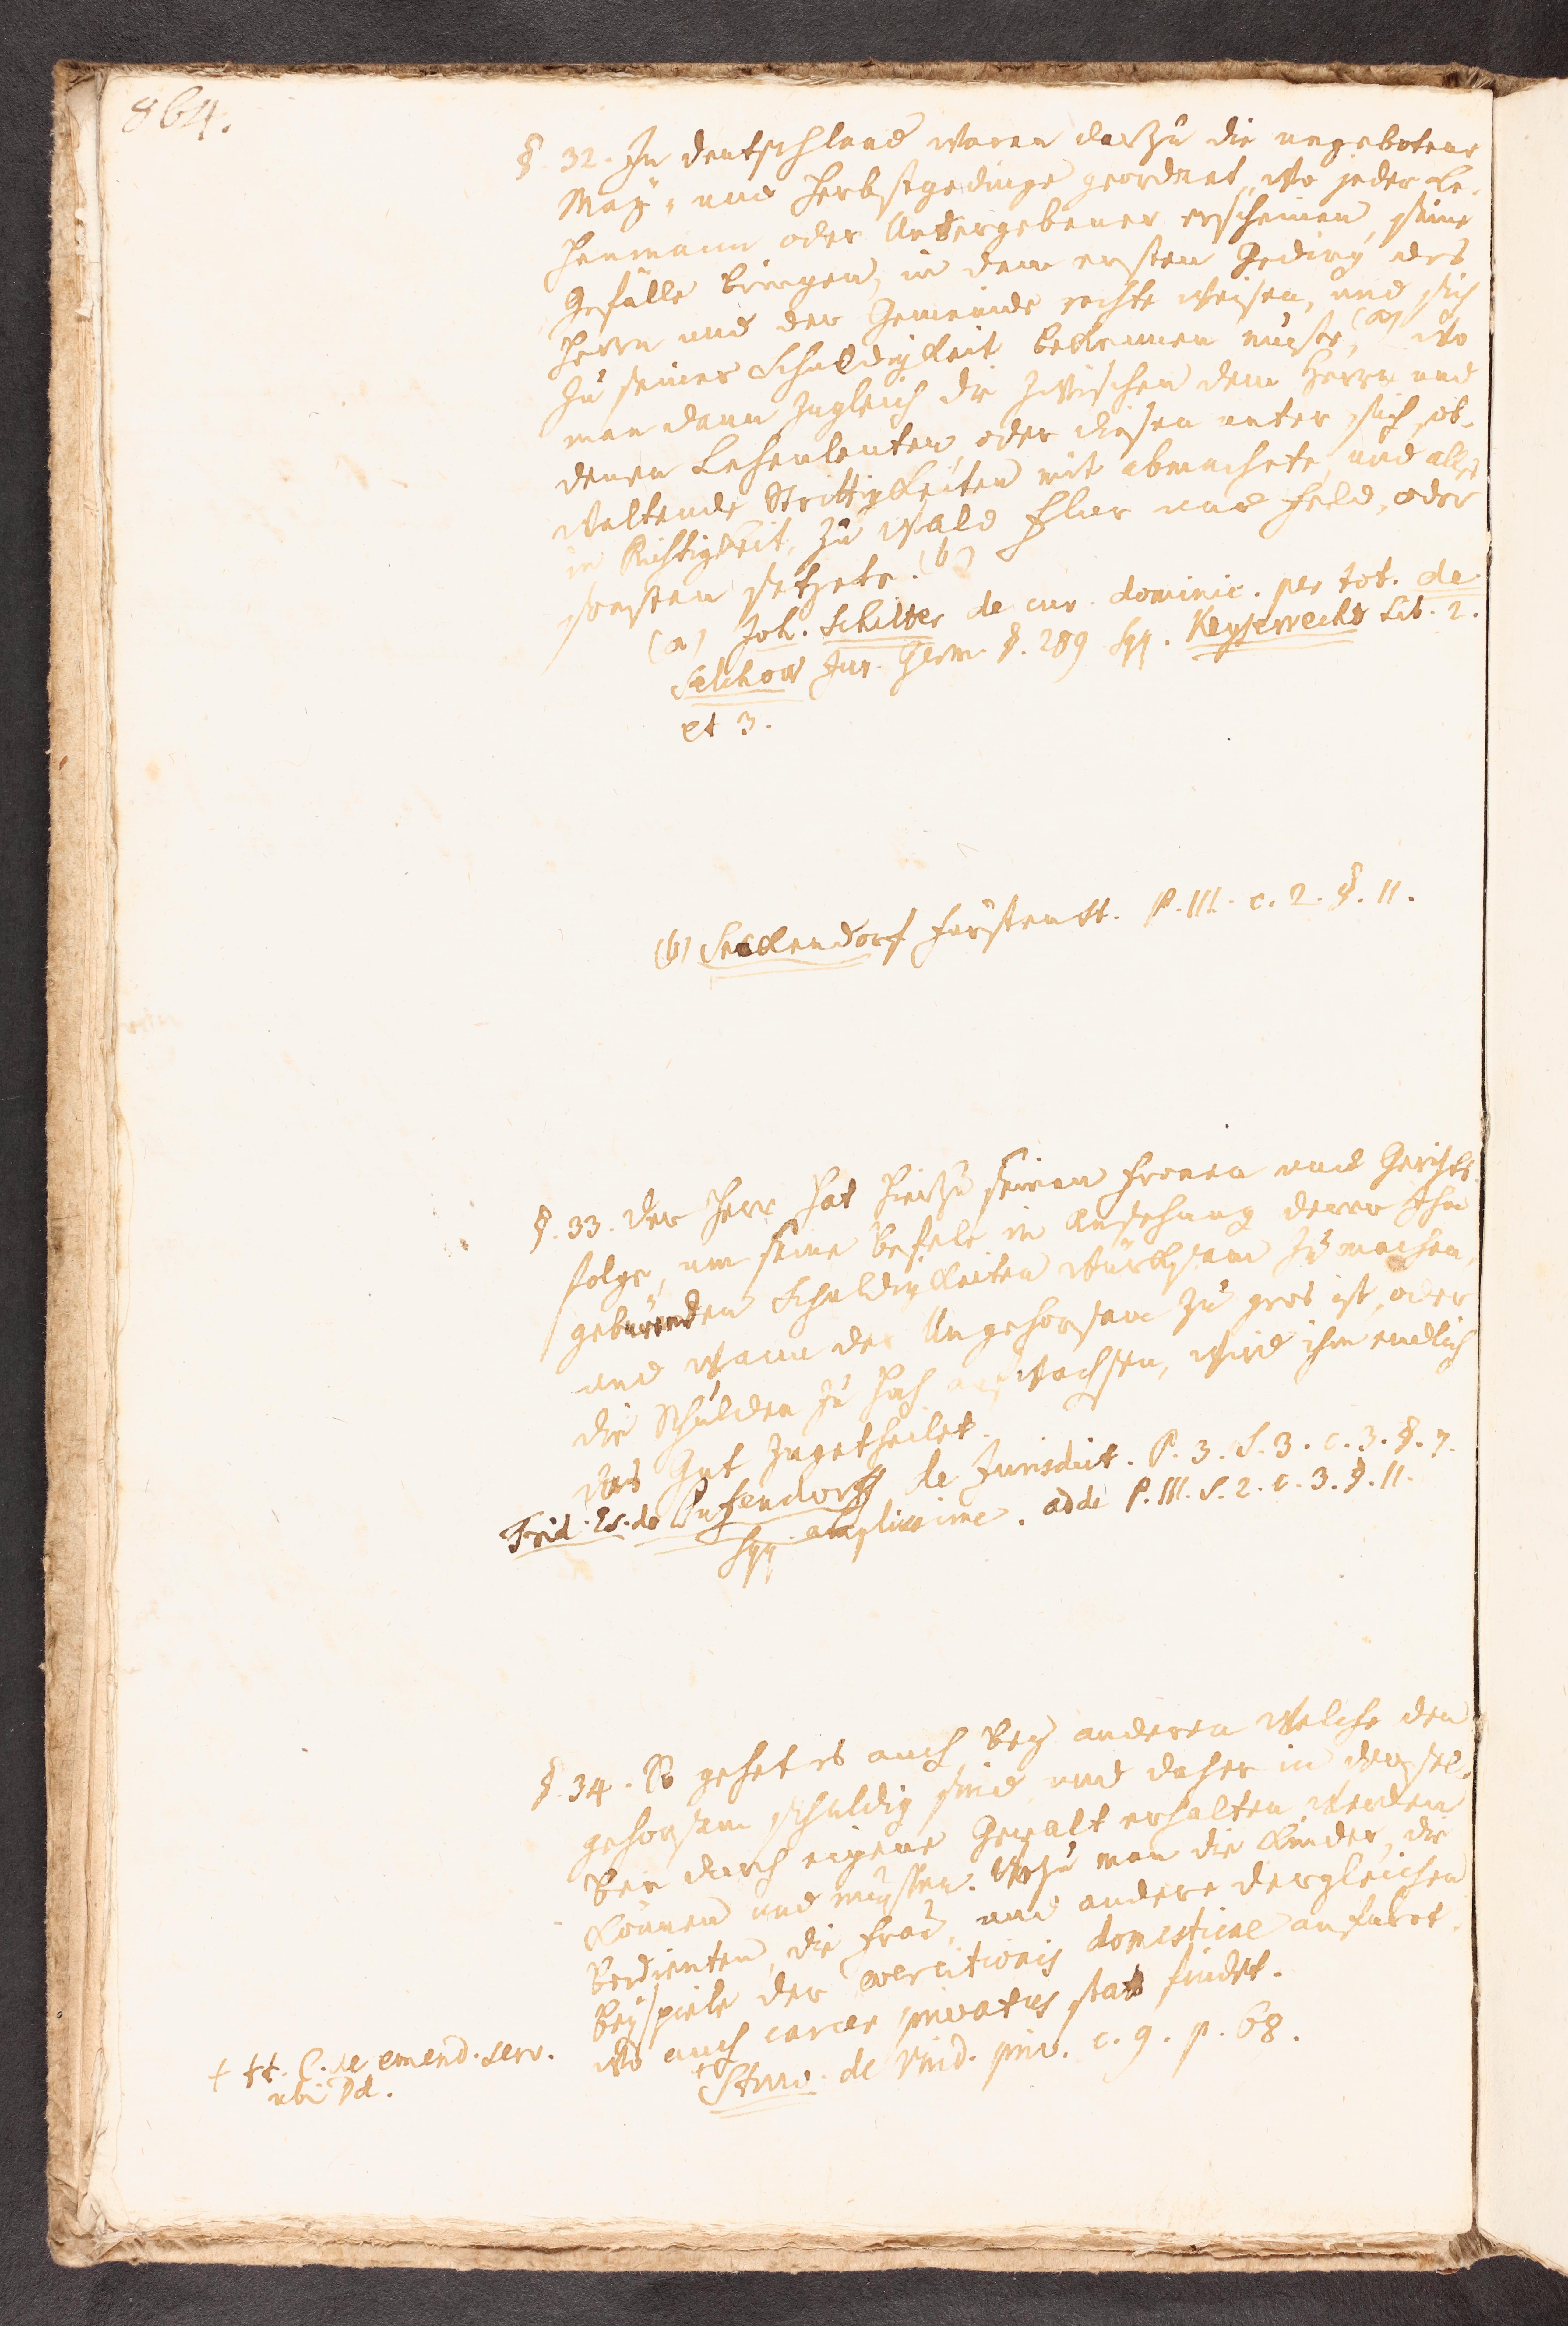 864.
§. 32. In deutschland waren darzu die ungebotene
May= und Herbstgedinge geordnet, wo jeder Le-
henmann oder Untergebener erscheinen, seine
Gefälle bringen, in dem ersten Geding des
Herrn und der Gemeinde rechte weisen, und sich
zu seiner Schuldigkeit bekennen muste, (a) wo
man dann zugleich die zwischen dem Herrn und
denen Lehenleuten, oder diesen unter sich ob-
waltende Strittigkeiten mit abmachete, und alles
in Richtigkeit, zu Wald Flur und Feld, oder
sonsten setzete. (b)
(a) Joh. Schilter de cur. dominic. per tot. de
Selchow Jur. Germ. §. 289 sqq. Keyserrecht Lib. 2.
et 3.
(b) Seckendorf Fürstenst. P. III. c. 2. §. 11.
§. 33. Der Herr hat hierzu seinen Fronen und Gerichts-
folge, um seine Befele in Ansehung derer Ihm
gebürenden Schuldigkeiten würksam zu machen,
und wann der Ungehorsam zu gros ist, oder
die Schulden zu hoch aufwachsen, wird ihm endlich
das Gut zugetheilet.
Frid. Es. de Pufendorff de Jurisdict. P. 3. S. 3. c. 3. §. 7.
sqq. amplissime. adde P. III. S. 2. c. 3. §. 11.
§. 34. So gehet es auch bey anderen welche den
gehorsam schuldig sind, und daher in dersel-
ben durch eigene Gewalt erhalten werden
können und müssen. Wozu man die Kinder, die
Bedienten, die Frau, und andere dergleichen
Beyspiele der coercitionis domesticae anfüret.
wo auch carcer privatus stat findet.
† Struv. de vind. priv. c. 9. p. 68.
† tt. C. de emend. serv.
ubi Dd.